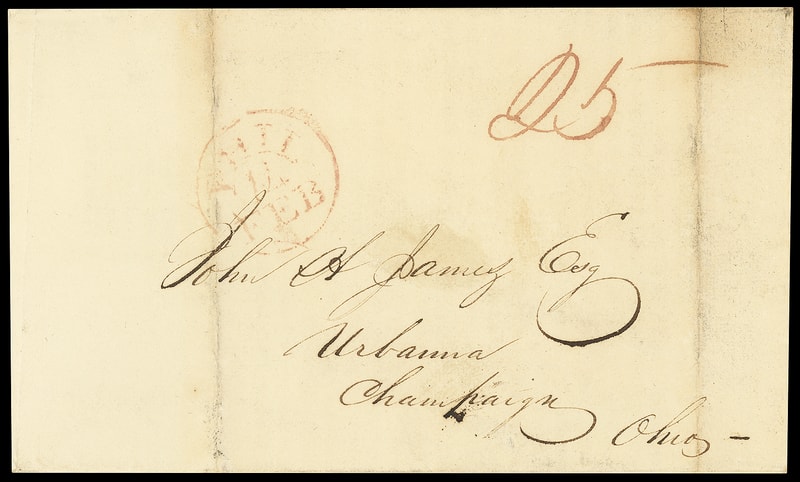 25
PHIL
FEB
John H James Esq
Urbanna
Champaign
Ohio –